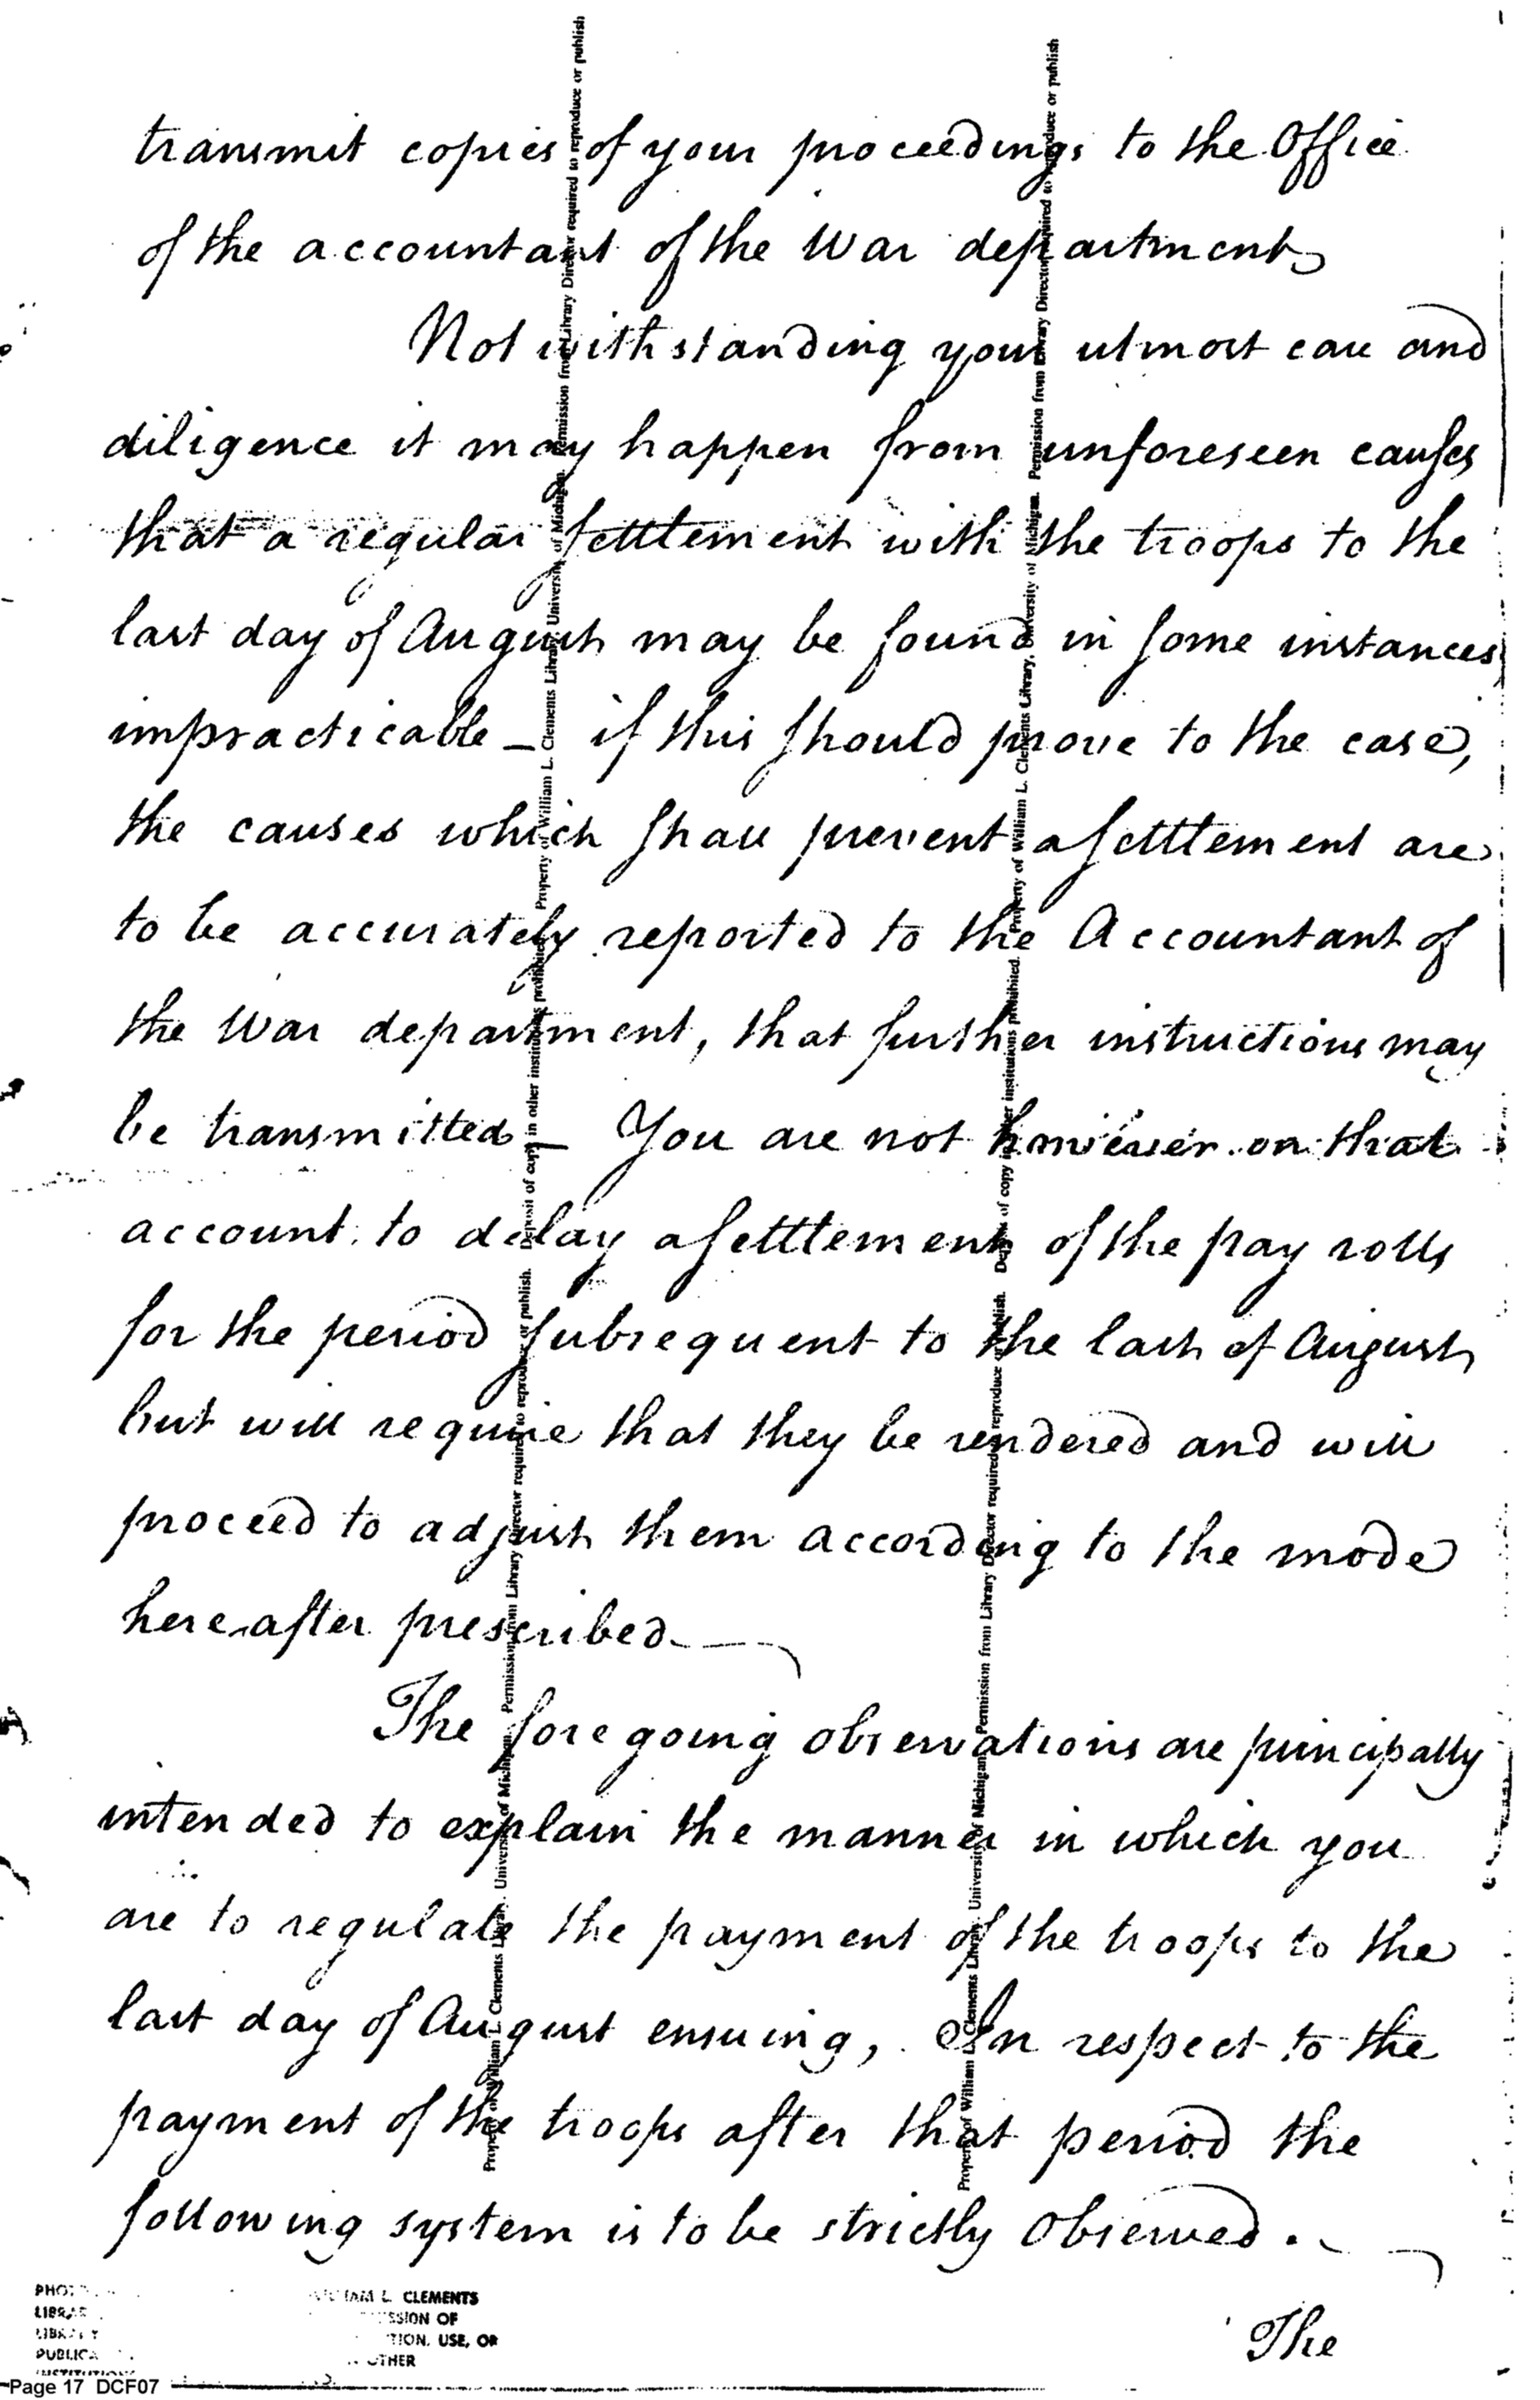 transmit copies of your proceedings to the Office
of the accountant of the War department
Notwithstanding your utmost care and
diligence it may happen from unforeseen causes
that a regular settlement with the troops to the
last day of August may be found in some instances
impracticable — if this should prove to the case,
the causes which shall prevent a settlement are
to be accurately reported to the Accountant of
the War department, that further instructions may
be transmitted — You are not however on that
account to delay a settlement of the pay rolls
for the period subsequent to the last of August,
but will require that they be rendered and will
proceed to adjust them according to the mode
hereafter prescribed —
The foregoing observations are principally
intended to explain the manner in which you
are to regulate the payment of the troops to the
last day of August ensuing, In respect to the
payment of the troops after that period the
following system is to be strictly observed.
The
Property of William L. Clements Library, University of Michigan. Permission from Library Director required to reproduce or publish. Deposit of copy in other institutions prohibited.
Property of William L. Clements Library, University of Michigan. Permission from Library Director required to reproduce or publish
Property of William L. Clements Library, University of Michigan. Permission from Library Director required to reproduce or publish. Deposit of copy in other institutions prohibited.
Property of William L. Clements Library, University of Michigan. Permission from Library Director required to reproduce or publish
CLEMENTS
OF
USE, OR
OTHER
Page 17 DCF07